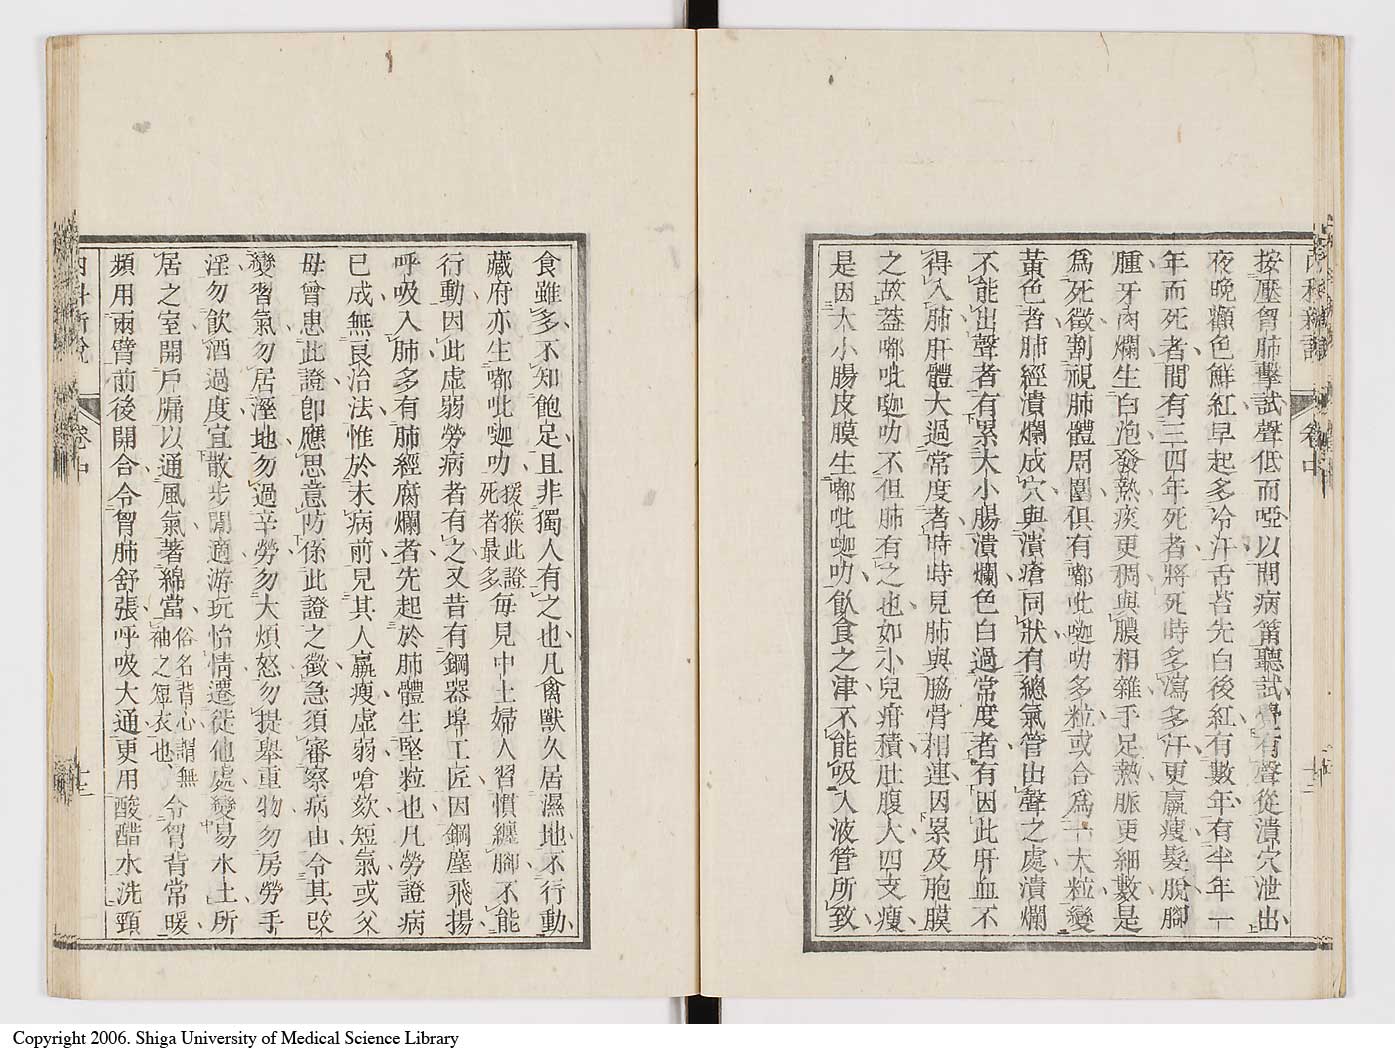 按壓胷肺擊試聲低而啞以問病筩聽試覺有聲從潰穴泄出
夜晚顴色鮮紅早起多冷汗舌苔先白後紅有數年有半年一
年而死者間有三四年死者將死時多瀉多汗更羸瘦髮脫腳
腫牙肉爛生白泡發熱痰更稠與膿相雜手足熱脈更細數是
爲死徵割視肺體周圍俱有嘟吡𠺝叻多粒或合爲一大粒變
黃色者肺經潰爛成穴與潰瘡同狀有總氣管出聲之處潰爛
不能出聲者有累大小腸潰爛色白過常度者有因此肝血不
得入肺肝體大過常度者時時見肺與脇骨相連因累及胞膜
之故葢嘟吡𠺝叻不但肺有之也如小兒疳積肚腹大四支瘦
是因大小腸皮膜生嘟吡𠺝叻飲食之津不能吸入液管所致
內科新說
卷中
十二
食雖多不知飽足且非獨人有之也凡禽獸久居濕地不行動
藏府亦生嘟吡𠺝叻猨猴此證死者最多每見中土婦人習慣纏腳不能
行動因此虛弱勞病者有之又昔有鋼器埠工匠因鋼塵飛揚
呼吸入肺多有肺經腐爛者先起於肺體生堅粒也凡勞證病
已成無良治法惟於未病前見其人羸瘦虛弱嗆欬短氣或父
母曾患此證卽應思意防係此證之徵急須審察病由令其改
變習氣勿居溼地勿過辛勞勿大煩怒勿提舉重物勿房勞手
淫勿飲酒過度宜散步閒適游玩怡情遷徙他處變易水土所
居之室開戶牖以通風氣著綿當俗名背心謂無袖之短衣也令胷背常暖
頻用兩臂前後開合令胷肺舒張呼吸大通更用酸醋水洗頸
內科新說
卷中
十三
Copyright 2006. Shiga University of Medical Science Library